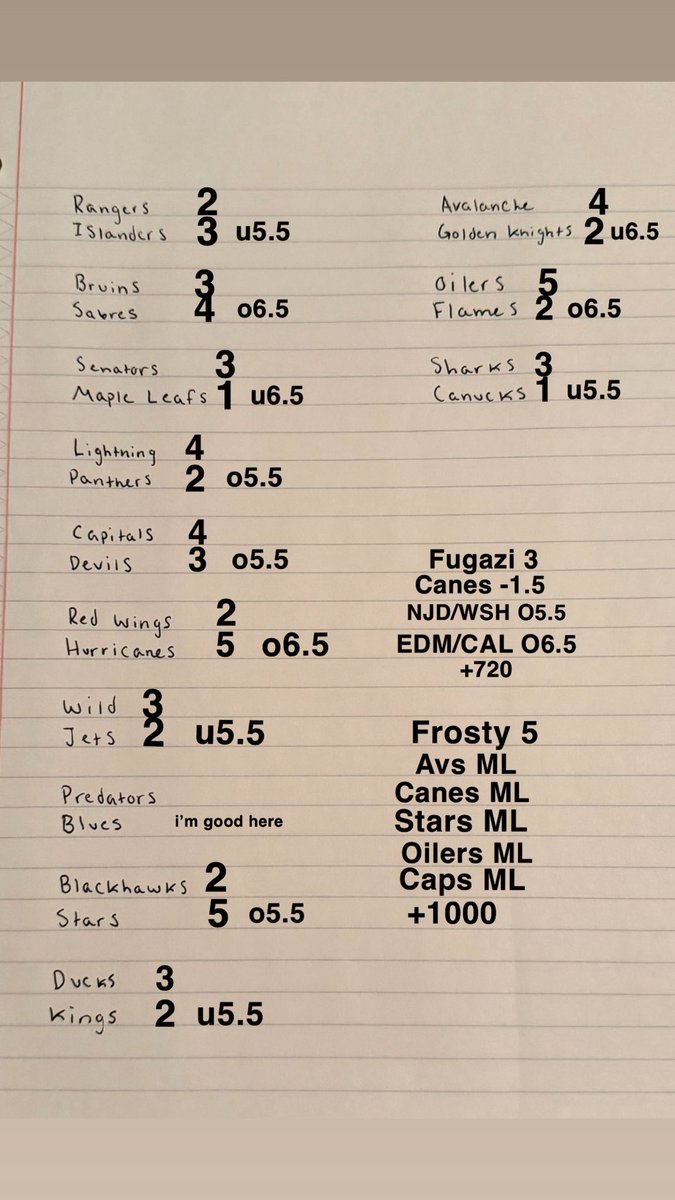 Rangers 2
Islanders 3 u5.5
Bruins 3
Sabres 4 o6.5
Senators 3
Maple Leafs 1 u6.5
Lightning 4
Panthers 2 o5.5
Capitals 4
Devils 3 o5.5
Red Wings 2
Hurricanes 5 o6.5
Wild 3
Jets 2 u5.5
Predators
Blues i'm good here
Blackhawks 2
Stars 5 o5.5
Ducks 3
Kings 2 u5.5
Avalanche 4
Golden Knights 2 u6.5
Oilers 5
Flames 2 o6.5
Sharks 3
Canucks 1 u5.5
Fugazi 3
Canes -1.5
NJD/WSH O5.5
EDM/CAL O6.5
+720
Frosty 5
Avs ML
Canes ML
Stars ML
Oilers ML
Caps ML
+1000